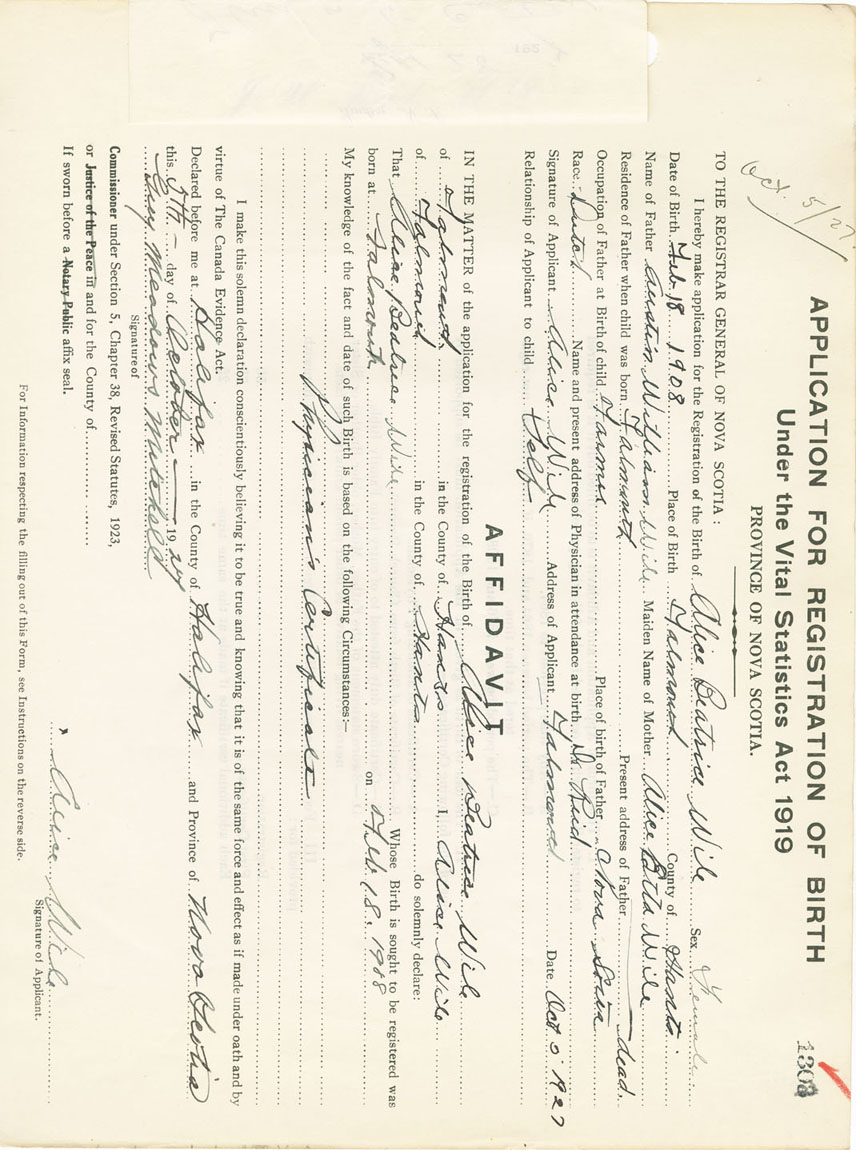 APPLICATION FOR REGISTRATION OF BIRTH
1303
Under the Vital Statistics Act 1919
PROVINCE OF NOVA SCOTIA.
Oct. 5/27
TO THE REGISTRAR GENERAL OF NOVA SCOTIA :
I hereby make application for the Registration of the Birth of Alice Beatrice Wile Sex Female
Date of Birth Feb. 18 1908 Place of Birth Falmouth County of Hants
Name of Father Austin William Wile Maiden Name of Mother Alice Etta Wile
Residence of Father when child was born Falmouth Present address of Father dead.
Occupation of Father at Birth of child Farmer Place of birth of Father Nova Scotia
Race:- Dutch Name and present address of Physician in attendance at birth Dr. Reid
Signature of Applicant Alice Wile Address of Applicant Falmouth Date Oct 5 1927
Relationship of Applicant to child Self
AFFIDAVIT
IN THE MATTER of the application for the registration of the Birth of Alice Beatrice Wile
of Falmouth in the County of Hants I, Alice Wile
of Falmouth in the County of Hants do solemnly declare:
That Alice Beatrice Wile Whose Birth is sought to be registered was
born at Falmouth on Feb 18. 1908
My knowledge of the fact and date of such Birth is based on the following Circumstances:—
Physician's Certificate
I make this solemn declaration conscientiously believing it to be true and knowing that it is of the same force and effect as if made under oath and by
virtue of The Canada Evidence Act.
Declared before me at Halifax in the County of Halifax and Province of Nova Scotia
this 5th day of October 1927
Guy Meadows Mitchell
Signature of
Commissioner under Section 5, Chapter 38, Revised Statutes, 1923,
or Justice of the Peace in and for the County of
If sworn before a Notary Public affix seal.
Alice Wile
Signature of Applicant.
For Information respecting the filling out of this Form, see Instructions on the reverse side.